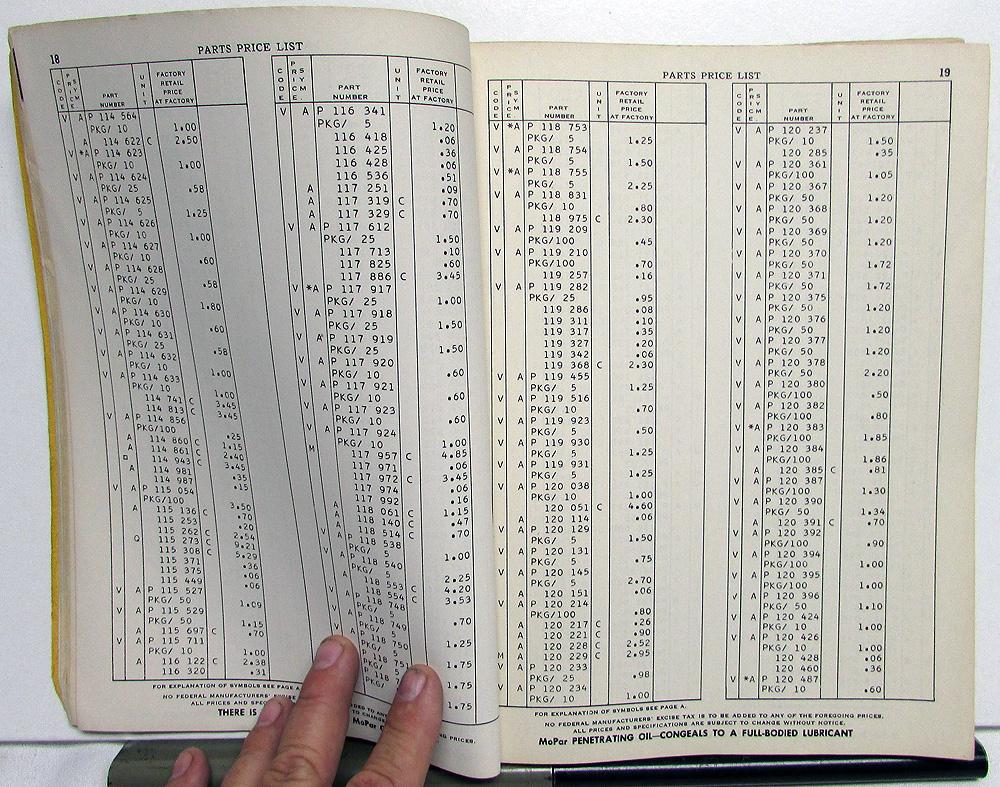 18
PARTS PRICE LIST
CODE PRICE SYM. PART NUMBER UNIT FACTORY RETAIL PRICE AT FACTORY
V A P 114 564
PKG/ 10 1.00
A 114 622 C 2.50
V *A P 114 623
PKG/ 10 1.00
V A P 114 624
PKG/ 25 .58
V A P 114 625
PKG/ 5 1.25
V A P 114 626
PKG/ 10 1.00
V A P 114 627
PKG/ 10 .60
V A P 114 628
PKG/ 25 .58
V A P 114 629
PKG/ 10 1.80
V A P 114 630
PKG/ 10 .60
V A P 114 631
PKG/ 25 .58
V A P 114 632
PKG/ 10 1.00
V A P 114 633
PKG/ 10 1.00
114 741 C 3.45
114 813 C 3.45
V A P 114 856
PKG/100 .25
A 114 860 C 1.15
A 114 861 C 2.40
114 943 C 3.45
A 114 981 .35
114 987 .15
V A P 115 054
PKG/100 3.50
A 115 136 C .70
115 253 .20
115 262 C 2.54
Q 115 273 C 9.21
115 308 C 5.29
115 371 .36
115 375 .06
115 449 .06
V A P 115 527
PKG/ 50 1.09
V A P 115 529
PKG/ 50 1.15
A 115 697 C .70
V A P 115 711
PKG/ 10 1.00
A 116 122 C 2.38
116 320 .31
CODE PRICE SYM. PART NUMBER UNIT FACTORY RETAIL PRICE AT FACTORY
V A P 116 341
PKG/ 5 1.20
116 418 .06
116 425 .36
116 428 .06
116 536 .51
A 117 251 .09
A 117 319 C .70
A 117 329 C .70
V A P 117 612
PKG/ 25 1.50
117 713 .10
117 825 .60
117 886 C 3.45
V *A P 117 917
PKG/ 25 1.00
V A P 117 918
PKG/ 25 1.50
V A P 117 919
PKG/ 25 1.50
V A P 117 920
PKG/ 10 .60
V A P 117 921
PKG/ 10 .60
V A P 117 923
PKG/ 10 .60
V A P 117 924
PKG/ 10 1.00
M 117 957 C 4.85
117 971 .06
117 972 C 3.45
117 974 .06
117 992 .16
A 118 061 C 1.15
A 118 140 C .47
A 118 514 C .70
V A P 118 538
PKG/ 5 1.00
V A P 118 540
PKG/ 5 2.25
A 118 553 C 4.20
A 118 554 C 3.53
V A P 118 748
PKG/ 5 .70
V A P 118 749
PKG/ 5 1.25
P 118 750
PKG/ 5 1.75
118 751
PKG/ 1.75
118
PKG/ 1.75
FOR EXPLANATION OF SYMBOLS SEE PAGE A
NO FEDERAL MANUFACTURERS' EXCISE TO ANY PRICES.
ALL PRICES AND TO CHANGE
THERE IS MoPar
PARTS PRICE LIST
19
CODE PRICE SYM. PART NUMBER UNIT FACTORY RETAIL PRICE AT FACTORY
V *A P 118 753
PKG/ 5 1.25
V A P 118 754
PKG/ 5 1.50
V *A P 118 755
PKG/ 5 2.25
V A P 118 831
PKG/ 10 .80
118 975 C 2.30
V A P 119 209
PKG/100 .45
V A P 119 210
PKG/100 .70
119 257 .16
V A P 119 282
PKG/ 25 .95
119 286 .08
119 311 .10
119 317 .35
119 327 .20
119 342 .06
119 368 C 2.30
V A P 119 455
PKG/ 5 1.25
V A P 119 516
PKG/ 10 .70
V A P 119 923
PKG/ 5 .50
V A P 119 930
PKG/ 5 1.25
V A P 119 931
PKG/ 5 1.25
V A P 120 038
PKG/ 10 1.00
120 051 C 4.60
A 120 114 .06
V A P 120 129
PKG/ 5 1.50
V A P 120 131
PKG/ 5 .75
V A P 120 145
PKG/ 5 2.70
A 120 151 .06
V A P 120 214
PKG/100 .80
A 120 217 C .26
A 120 221 C .90
A 120 228 C 2.52
M A 120 229 C 2.95
V A P 120 233
PKG/ 25 .98
V A P 120 234
PKG/ 10 1.00
CODE PRICE SYM. PART NUMBER UNIT FACTORY RETAIL PRICE AT FACTORY
V A P 120 237
PKG/ 10 1.50
120 285 .35
V A P 120 361
PKG/100 1.05
V A P 120 367
PKG/ 50 1.20
V A P 120 368
PKG/ 50 1.20
V A P 120 369
PKG/ 50 1.20
V A P 120 370
PKG/ 50 1.72
V A P 120 371
PKG/ 50 1.72
V A P 120 375
PKG/ 50 1.20
V A P 120 376
PKG/ 50 1.20
V A P 120 377
PKG/ 50 1.20
V A P 120 378
PKG/ 50 2.20
V A P 120 380
PKG/100 .50
V A P 120 382
PKG/100 .80
V *A P 120 383
PKG/100 1.85
V A P 120 384
PKG/100 1.86
A 120 385 C .81
V A P 120 387
PKG/100 1.30
V A P 120 390
PKG/ 50 1.34
A 120 391 C .70
V A P 120 392
PKG/100 .90
V A P 120 394
PKG/100 1.00
V A P 120 395
PKG/100 1.00
V A P 120 396
PKG/ 50 1.10
V A P 120 424
PKG/ 10 1.00
V A P 120 426
PKG/ 10 1.00
120 428 .06
120 460 .36
V *A P 120 487
PKG/ 10 .60
FOR EXPLANATION OF SYMBOLS SEE PAGE A.
NO FEDERAL MANUFACTURERS' EXCISE TAX IS TO BE ADDED TO ANY OF THE FOREGOING PRICES.
ALL PRICES AND SPECIFICATIONS ARE SUBJECT TO CHANGE WITHOUT NOTICE.
MoPar PENETRATING OIL—CONGEALS TO A FULL-BODIED LUBRICANT